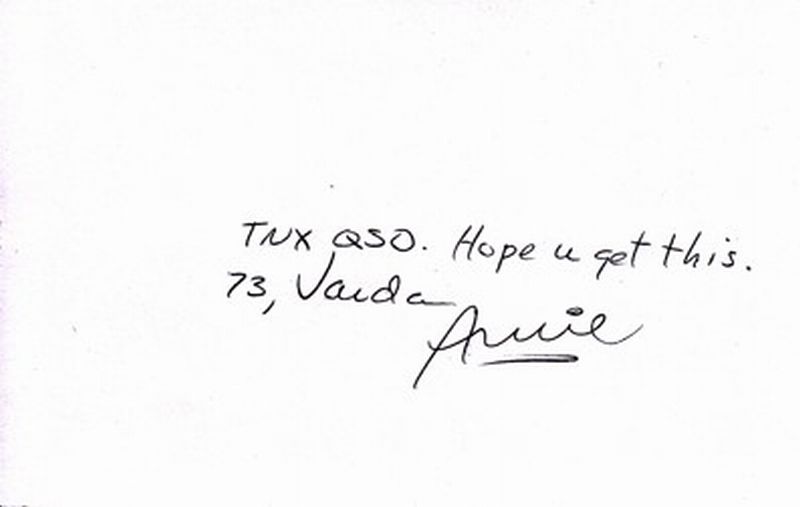 TNX QSO. Hope u get this.
73, Vaida
Arnie